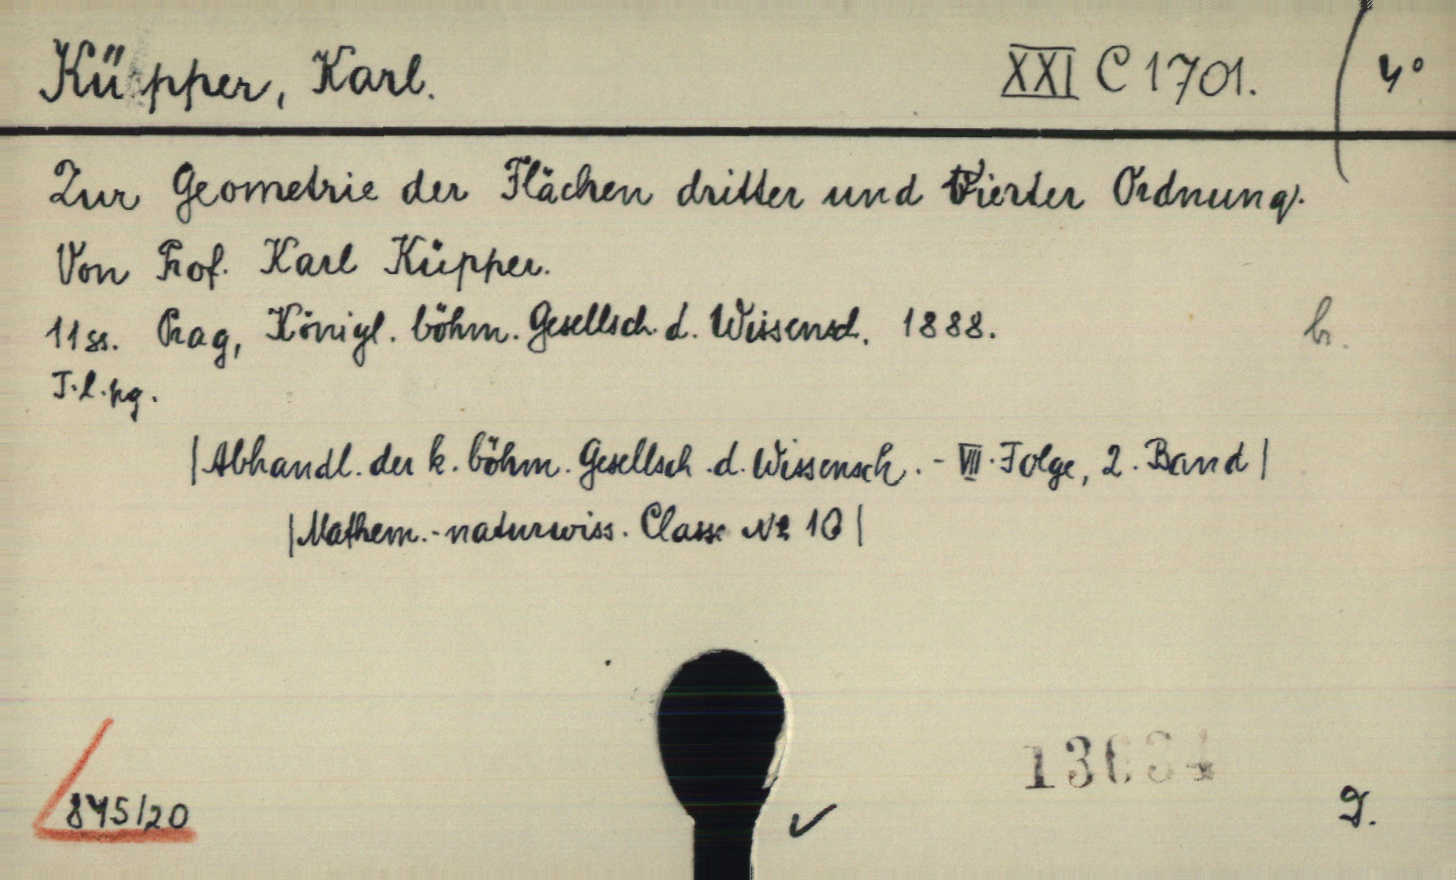 Küpper, Karl. XXI C 1701. 4°
Zur Geometrie der Flächen dritter und vierter Ordnung.
Von Prof. Karl Küpper.
11 ss. Prag, Königl. böhm. Gesellsch. d. Wissensch. 1888. br.
T. l. pg.
|Abhandl. der k. böhm. Gesellsch. d. Wissensch. - VII. Folge, 2. Band|
|Mathem.-naturwiss. Classe № 10|
845/20